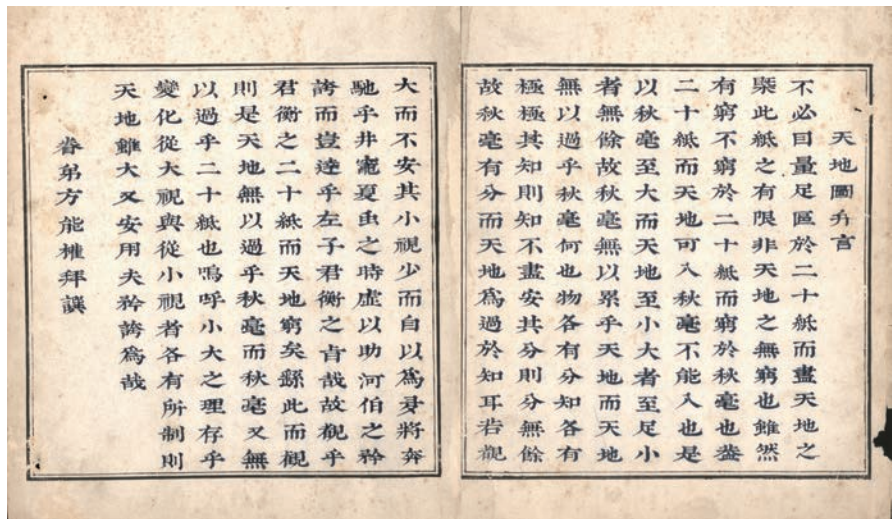 天地圖弁言
不必目量足區於二十紙而盡天地之
槩此紙之有限非天地之無窮也雖然
有窮不窮於二十紙而窮於秋毫也蓋
二十紙而天地可入秋毫不能入也是
以秋毫至大而天地至小大者至足小
者無餘故秋毫無以累乎天地而天地
無以過乎秋毫何也物各有分知各有
極極其知則知不盡安其分則分無餘
故秋毫有分而天地為過於知耳若觀
大而不安其小視少而自以為多將奔
馳乎井竃夏虫之時虛以助河伯之矜
誇而豈逹乎左子君衡之㫖哉故觀乎
君衡之二十紙而天地窮矣繇此而觀
則是天地無以過乎秋毫而秋毫又無
以過乎二十紙也嗚呼小大之理存乎
變化從大視與從小視者各有所制則
天地雖大又安用夫矜誇為哉
眷弟方能權拜譔